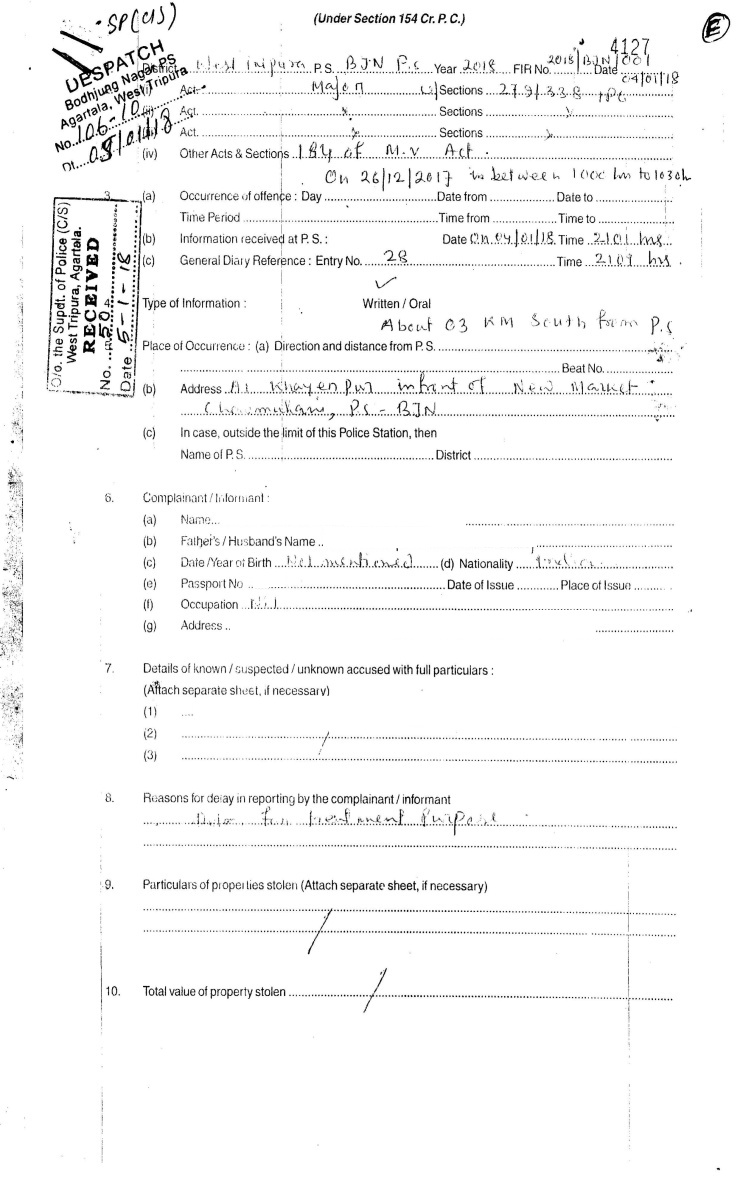 SP(C/S)
(Under Section 154 Cr. P. C.)
E
4127
DESPATCH
Bodhjung Nagar PS
Agartala, West Tripura
No. 106-10
Dt. 05/01/18
District West Tripura P.S. BJN P.S Year 2018 FIR No. 2018/BJN/001 Date 04/01/18
Act Major Sections 279/338 IPC
(ii) Act. x Sections x
(iii) Act. x Sections x
(iv) Other Acts & Sections 184 of M.V Act.
On 26/12/2017 in between 1000 hrs to 1030h
3. (a) Occurrence of offence : Day Date from Date to
Time Period Time from Time to
(b) Information received at P. S. : Date On 04/01/18 Time 2101 hrs
(c) General Diary Reference : Entry No. 28 Time 2109 hrs.
O/o. the Supdt. of Police (C/S)
West Tripura, Agartala.
RECEIVED
No. 50
Date 5-1-18
4. Type of Information : Written / Oral
About 03 KM South from P.S
Place of Occurrence : (a) Direction and distance from P. S.
Beat No.
(b) Address At Khayerpur infront of New Market
Chowmuhani, PS - BJN
(c) In case, outside the limit of this Police Station, then
Name of P. S. District
6. Complainant / Informant :
(a) Name...
(b) Father's / Husband's Name ..
(c) Date /Year of Birth Not mentioned (d) Nationality Indian
(e) Passport No .. Date of Issue Place of Issue
(f) Occupation Nil
(g) Address ..
7. Details of known / suspected / unknown accused with full particulars :
(Attach separate sheet, if necessary)
(1) ....
(2)
(3)
8. Reasons for delay in reporting by the complainant / informant
for treatment Purpose
9. Particulars of properties stolen (Attach separate sheet, if necessary)
10. Total value of property stolen